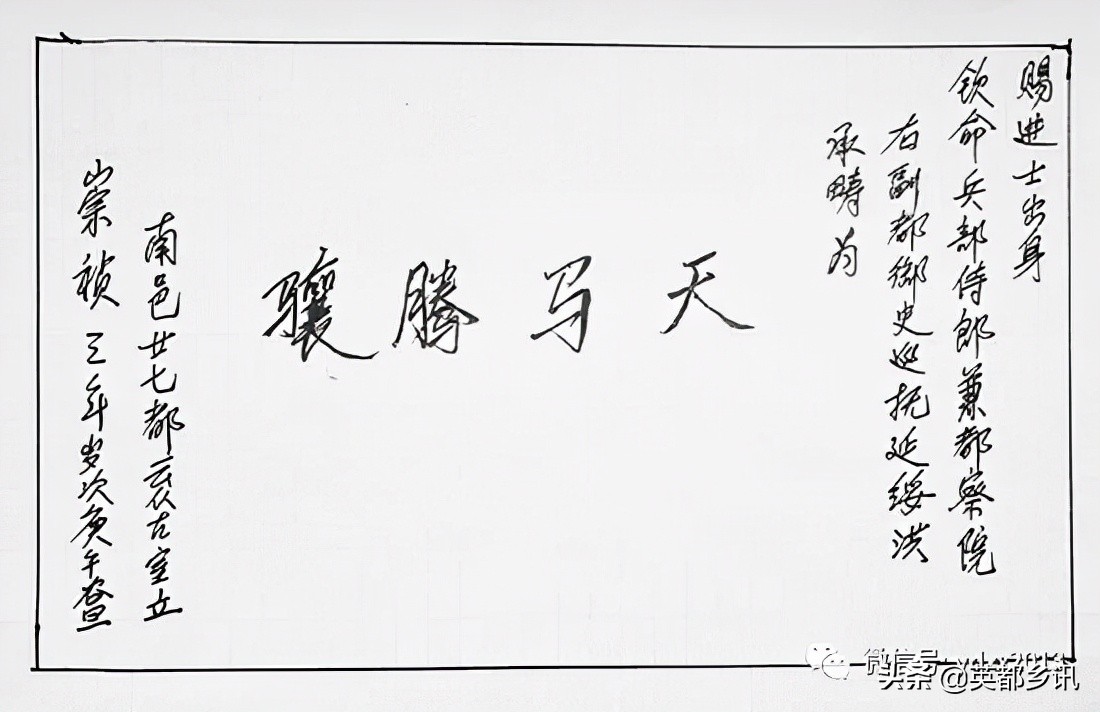 赐进士出身
钦命兵部侍郎兼都察院
右副都御史巡抚延绥洪
承畴为
天马腾骧
南邑廿七都
立
崇祯三年岁次庚午
微信号
头条 @英都乡讯